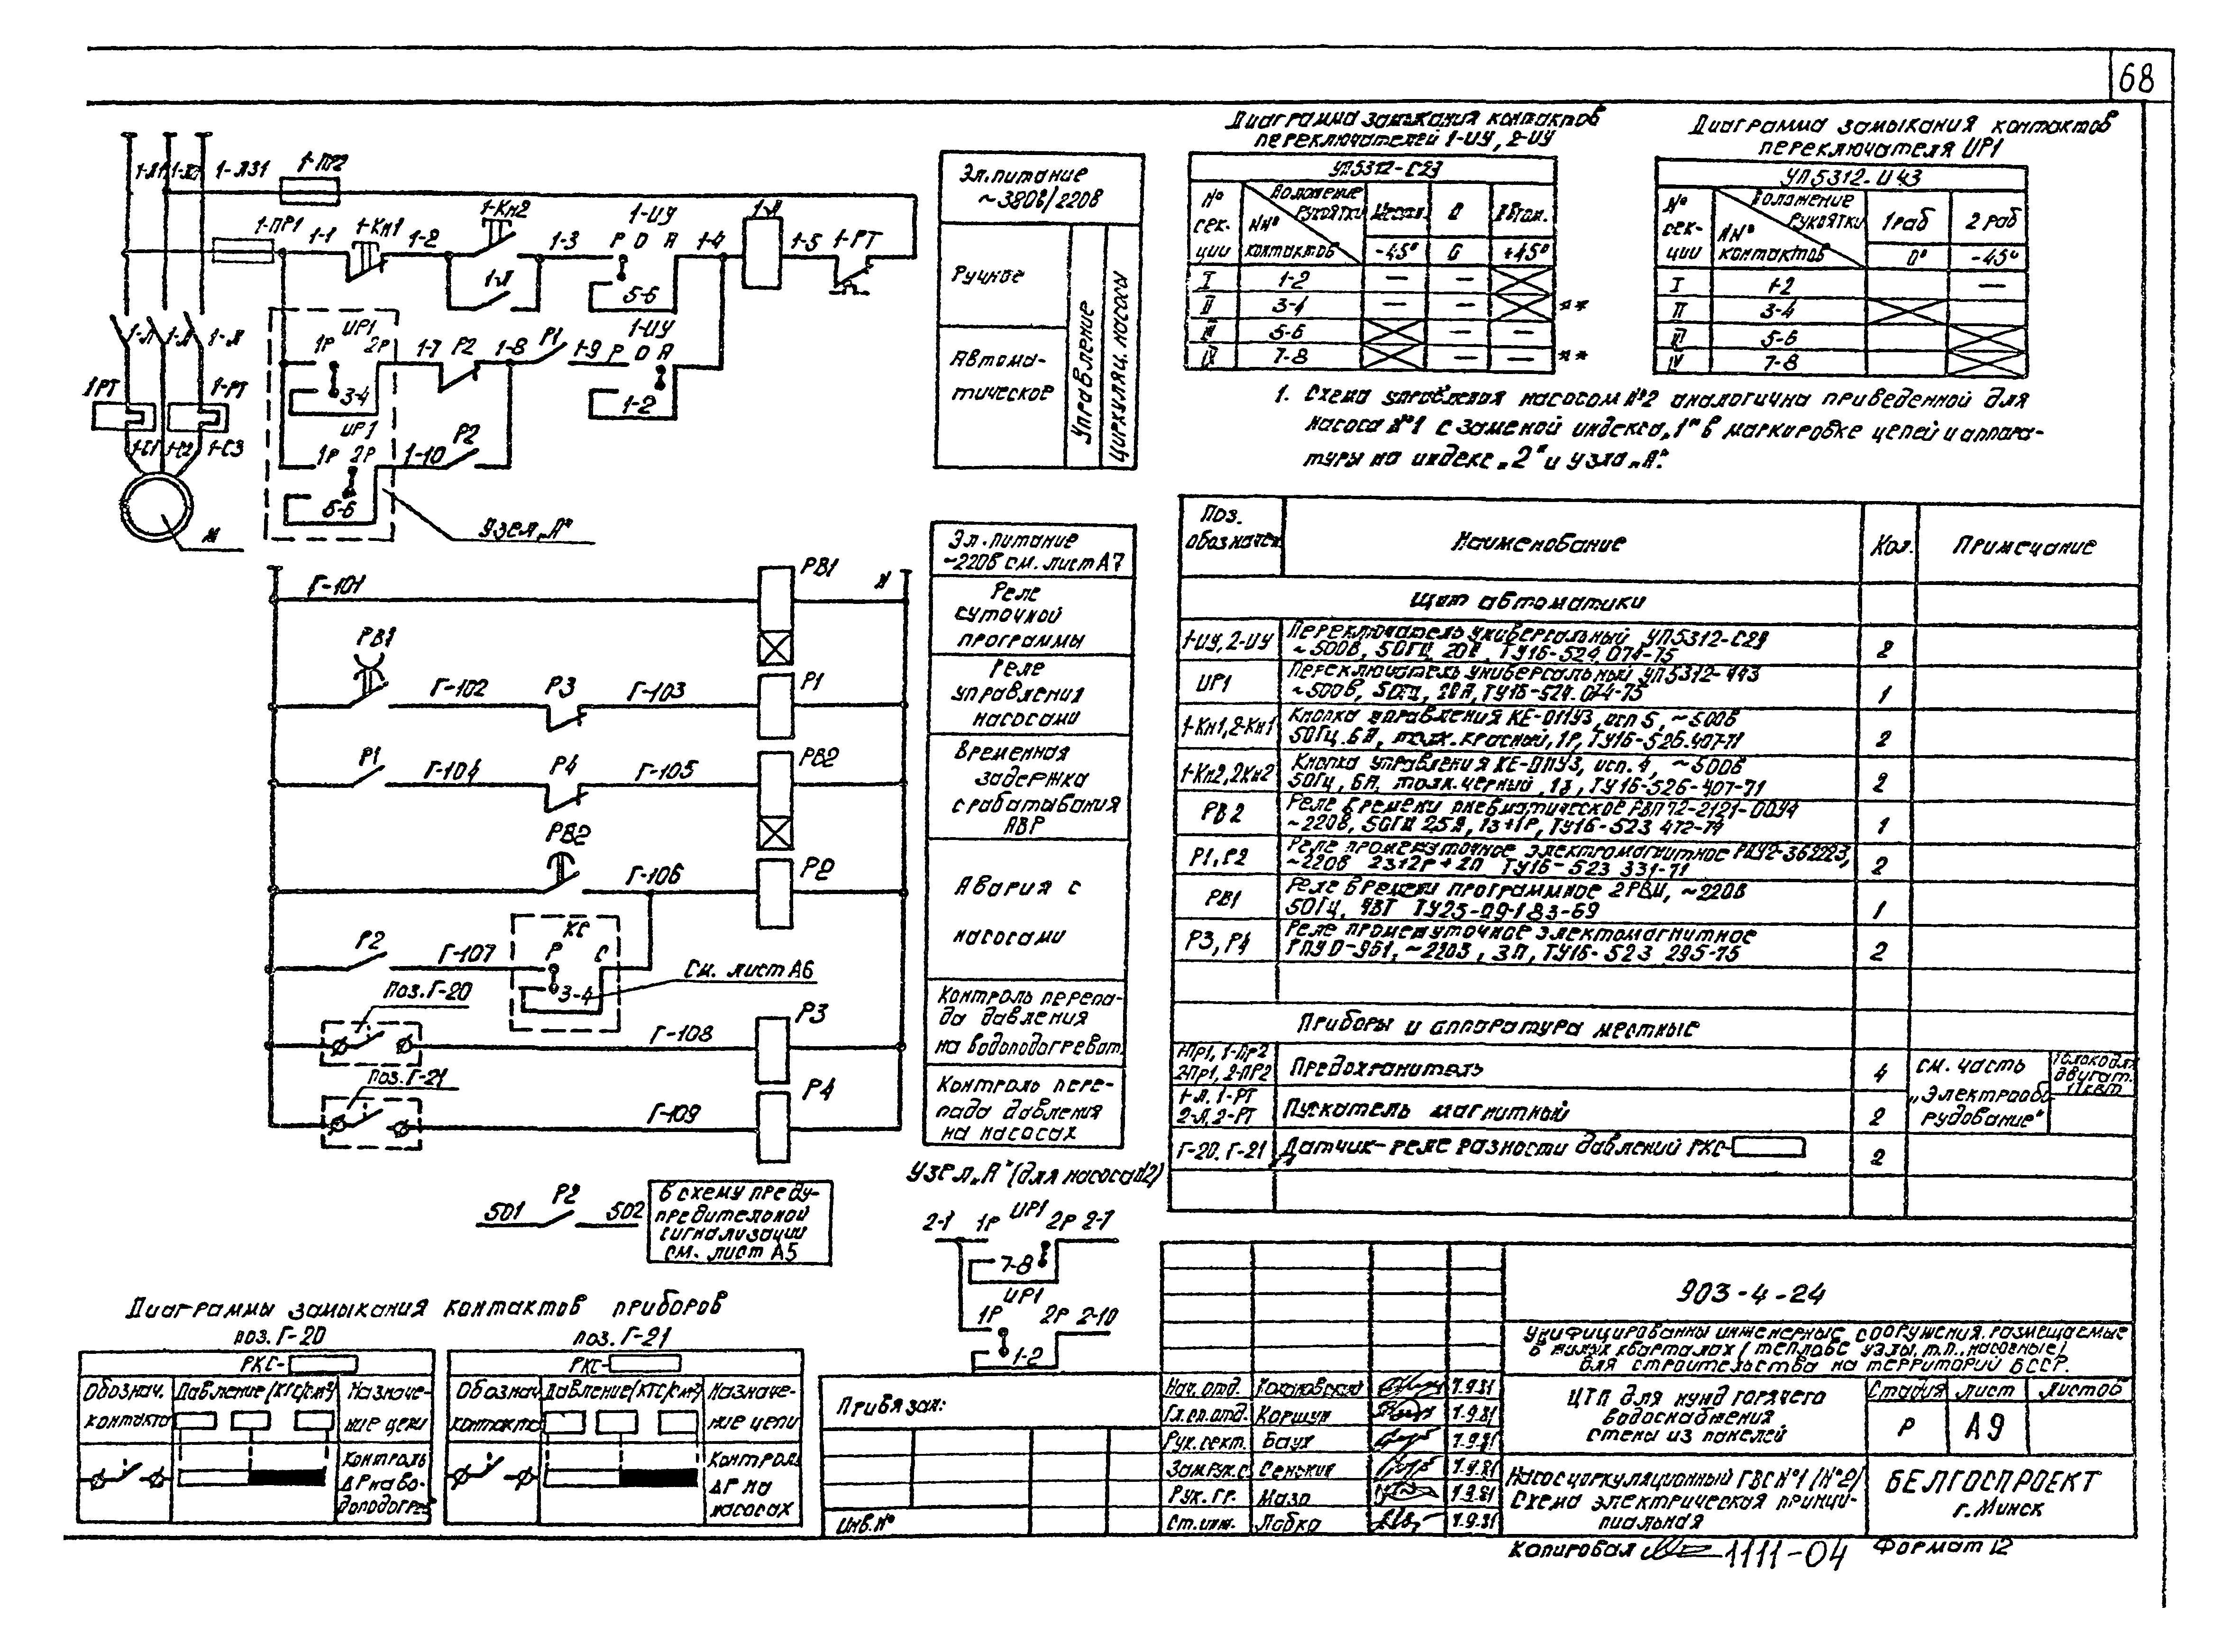 68
1-Л1
1-Л31
1-ПР2
1-ПР1
1-1
1-Кн1
1-2
1-Кн2
1-Л
1-3
1-ИУ
Р О А
5-6
1-4
1-Л
1-5
1-РТ
1-Л
1-Л
1-Л
1РТ
1-РТ
1-С1
1-С2
1-С3
М
ИР1
1Р 2Р
3-4
1-7
Р2
1-8
Р1
1-9
1-ИУ
Р О А
1-2
ИР1
1Р 2Р
5-6
1-10
Р2
Узел „А"
Эл.питание
~380в/220в
Ручное
Автома-
тическое
Управление
Циркуляц. насосы
Диаграмма замыкания контактов
переключателей 1-ИУ, 2-ИУ
УП5312-С29
№
сек-
ции
Положение
рукоятки
№№
контактов
Местн.
О
Автом.
-45°
0
+45°
I 1-2 — —
II 3-4 — — **
III 5-6 — —
IV 7-8 — — **
Диаграмма замыкания контактов
переключателя ИР1
УП5312-И43
№
сек-
ции
Положение
рукоятки
№№
контактов
1раб
2 раб
0°
-45°
I 1-2 —
II 3-4
III 5-6
IV 7-8
1. Схема управления насосом №2 аналогична приведенной для
насоса №1 с заменой индекса „1" в маркировке цепей и аппара-
туры на индекс „2" и узла „А".
Г-101
РВ1
N
РВ1
Г-102
Р3
Г-103
Р1
Р1
Г-104
Р4
Г-105
РВ2
РВ2
Г-106
Р2
Р2
Г-107
КС
Р С
3-4
См. лист А6
Поз. Г-20
Г-108
Р3
Поз. Г-21
Г-109
Р4
501
Р2
502
В схему преду-
предительной
сигнализации
см. лист А5
Эл.питание
~220в см. лист А7
Реле
суточной
программы
Реле
управления
насосами
Временная
задержка
срабатывания
АВР
Авария с
насосами
Контроль перепа-
да давления
на водоподогреват.
Контроль пере-
пада давления
на насосах
Узел „А" (для насоса №2)
2-1
1Р
ИР1
2Р
2-7
7-8
ИР1
1Р
2Р
2-10
1-2
Поз.
обозначен.
Наименование
Кол.
Примечание
Щит автоматики
1-ИУ, 2-ИУ
Переключатель универсальный УП5312-С29
~500в, 50Гц, 20А, ТУ16-524.074-75
2
ИР1
Переключатель универсальный УП5312-
~500в, 50Гц, 20А, ТУ16-524.074-75
1
1-Кн1, 2-Кн1
Кнопка управления КЕ-011У3, исп 5, ~500в
50Гц. 6А, толк. красный, 1Р, ТУ16-526.407-71
2
1-Кн2, 2Кн2
Кнопка управления КЕ-011У3, исп. 4, ~500в
50Гц, 6А, толк. черный, 1з, ТУ16-526-407-71
2
РВ2
Реле времени пневматическое РВП72-2121-00У4
~220в, 50Гц 2,5А, 1з+1Р, ТУ16-523 472-74
1
Р1, Р2
Реле промежуточное электромагнитное РПУ2-362223,
~220в 2з12Р+2П ТУ16-523 331-71
2
РВ1
Реле времени программное 2РВМ, ~220в
50Гц, ТУ25-09-183-69
1
Р3, Р4
Реле промежуточное электомагнитное
РПУ0-961, ~220в, 3П, ТУ16-523 295-75
2
Приборы и аппаратура местные
1-Пр1, 1-Пр2
2-Пр1, 2-ПР2
Предохранитель
4
см. часть
„Электрообо-
рудование"
только для
двигат.
1-Л, 1-РТ
2-Л, 2-РТ
Пускатель магнитный
2
Г-20, Г-21
Датчик-реле разности давлений РКС-
2
Диаграммы замыкания контактов приборов
поз. Г-20
РКС-
Обознач.
контакта
Давление (кгс/см²)
Назначе-
ние цепи
Контроль
ΔР на во-
доподогрев
поз. Г-21
РКС-
Обознач.
контакта
Давление (кгс/см²)
Назначе-
ние цепи
Контроль
ΔР на
насосах
Привязан:
Инв.№
Нач. отд. 7.9.81
Гл.сп.отд. Коршун 7.9.81
Рук. сект. Баух 7.9.81
Зам.рук.с Сенькия 7.9.81
Рук. гр. Мазо 7.9.81
Ст. инж. Лобко 7.9.81
903-4-24
Унифицированны инженерные сооружения, размещаемые
в жилых кварталах (теплове узлы, т.п., насосные)
для строительства на территорий БССР.
ЦТП для нужд горячего
водоснабжения,
стены из панелей
Стадия Лист Листов
Р А9
Насос циркуляционный ГВС №1 (№2)
Схема электрическая принци-
пиальная
БЕЛГОСПРОЕКТ
г. Минск
Копировал
1111-04
Формат 12